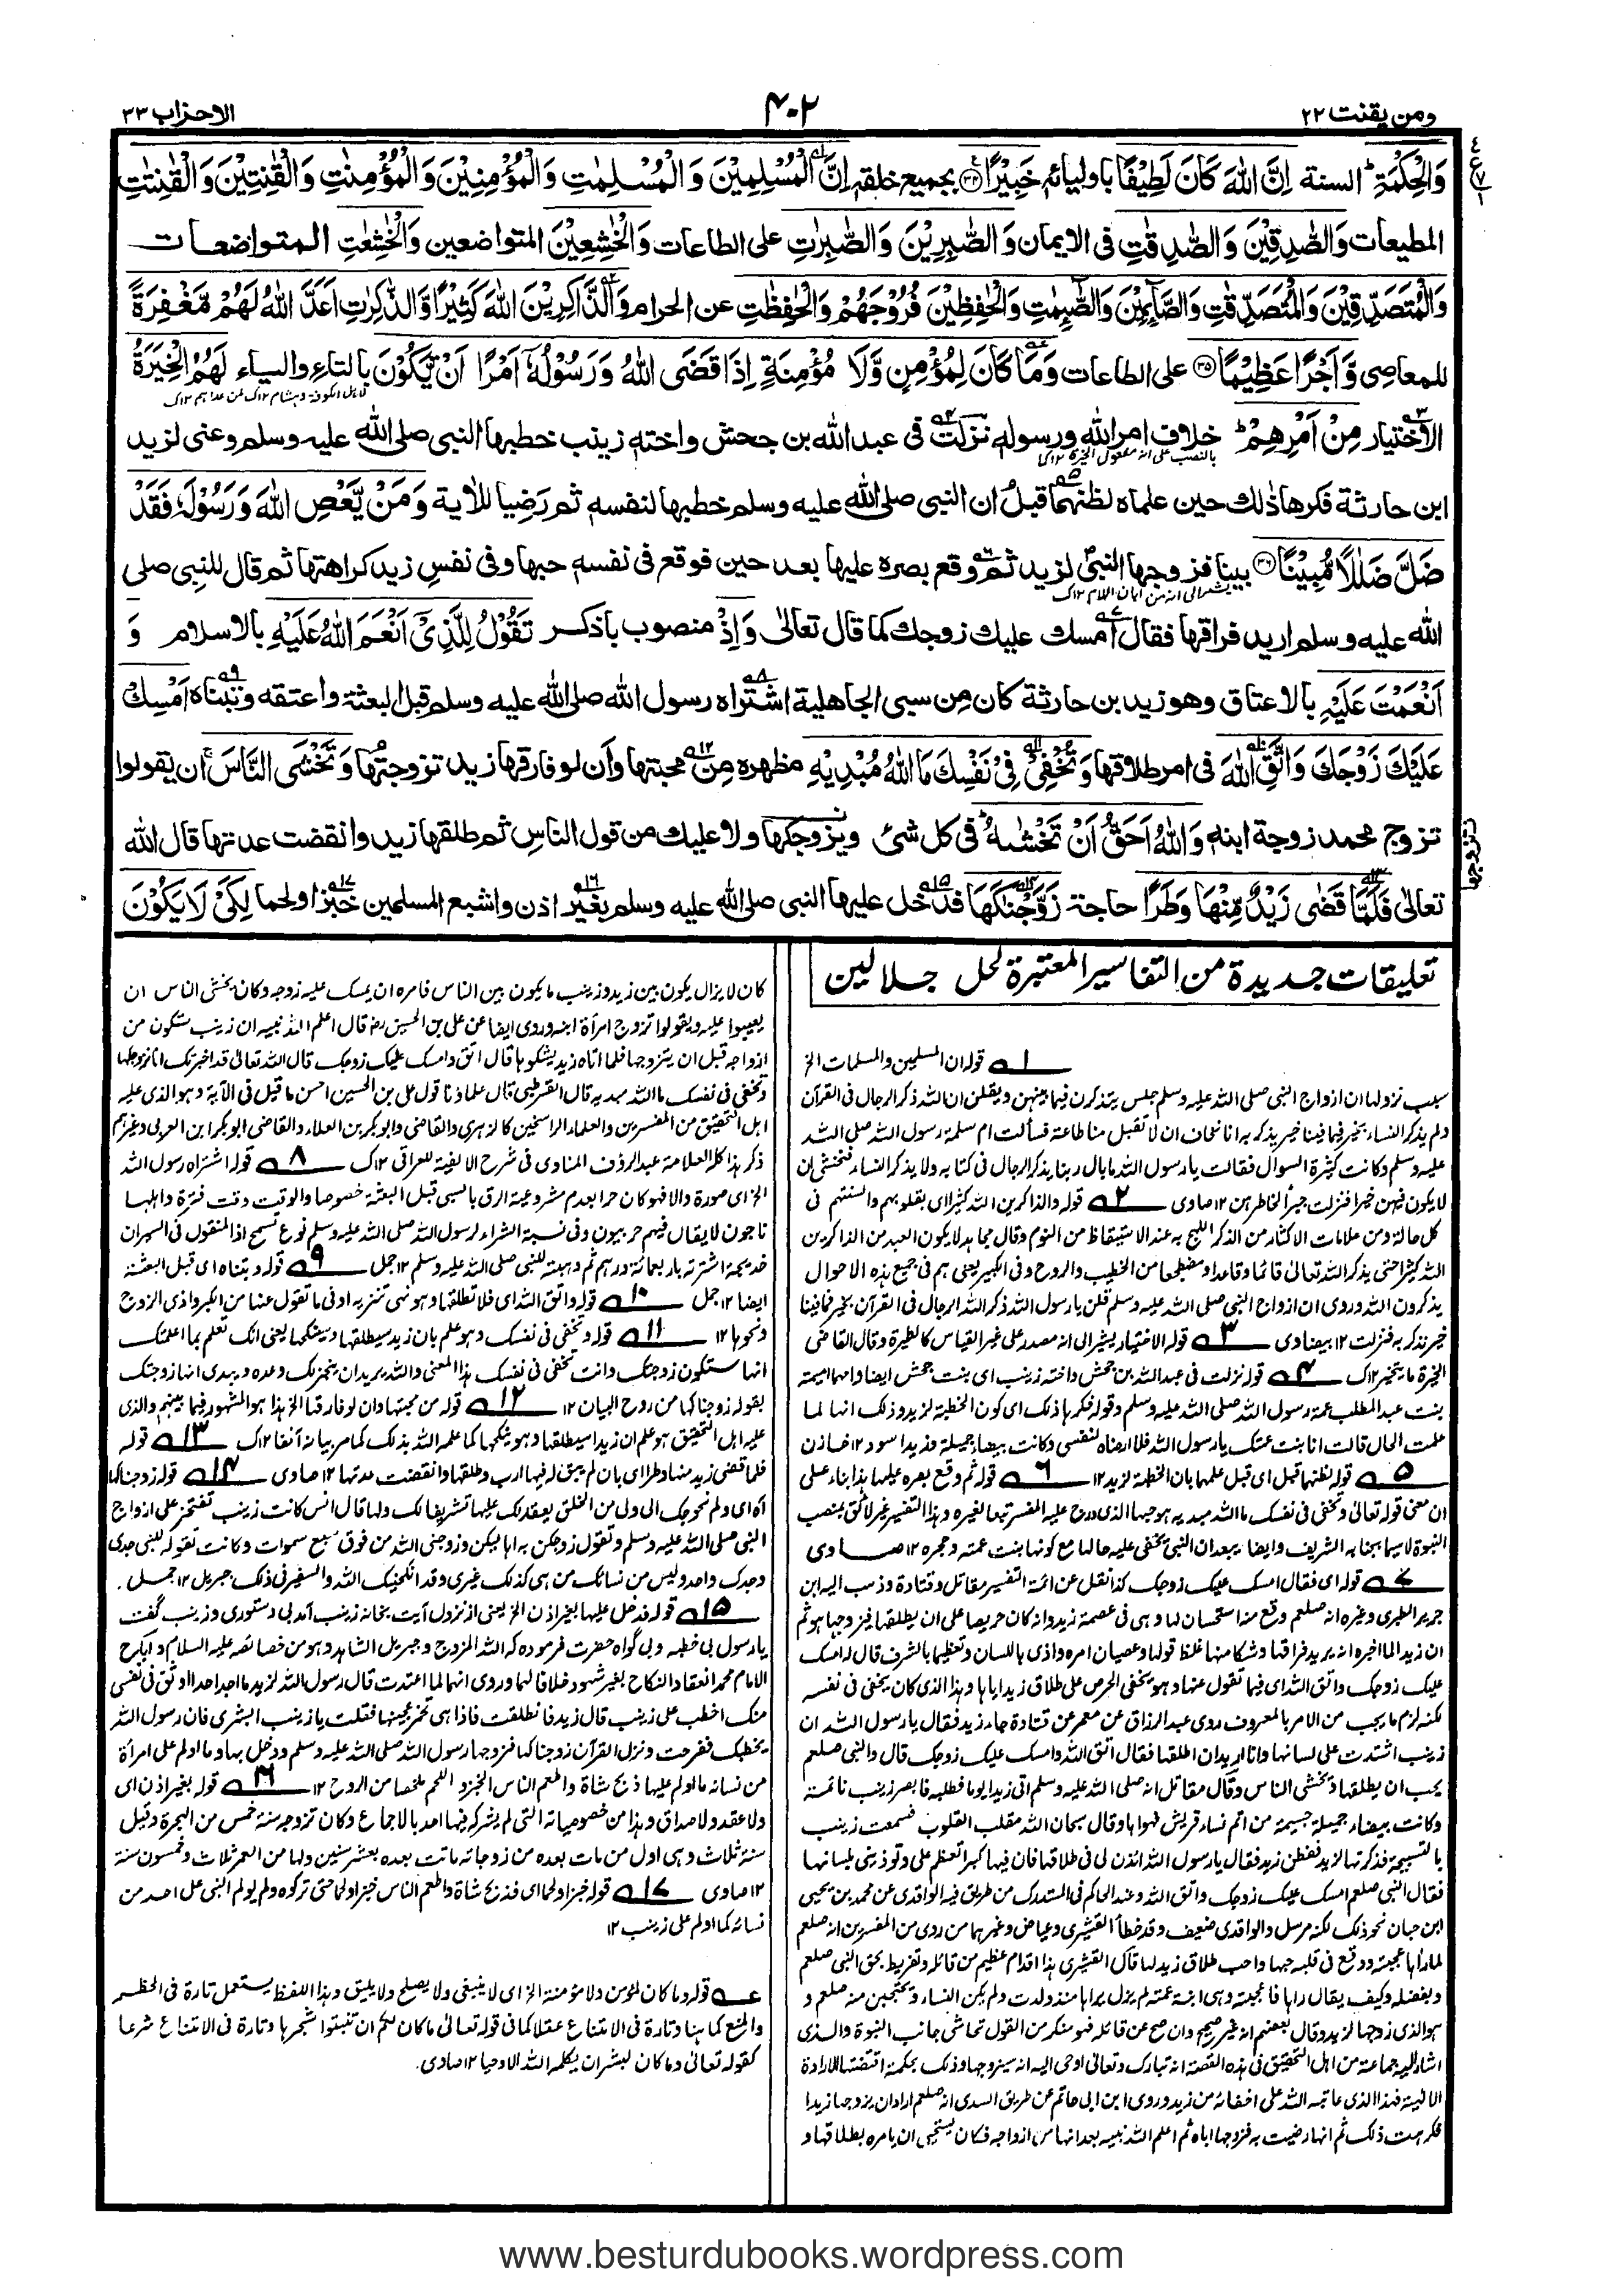 ومن يقنت ٢٢
٤٠٢
الاحزاب ٣٣
وَالْحِكْمَةِ ۭ السنة اِنَّ اللّٰهَ كَانَ لَطِيْفًا باوليائه خَبِيْرًا ۝٣٤ بجميع خلقه اِنَّ الْمُسْلِمِيْنَ وَ الْمُسْلِمٰتِ وَالْمُؤْمِنِيْنَ وَالْمُؤْمِنٰتِ وَالْقٰنِتِيْنَ وَ الْقٰنِتٰتِ
المطيعات وَالصّٰدِقِيْنَ وَ الصّٰدِقٰتِ فى الايمان وَ الصّٰبِرِيْنَ وَ الصّٰبِرٰتِ على الطاعات وَالْخٰشِعِيْنَ المتواضعين وَالْخٰشِعٰتِ المتواضعات
وَالْمُتَصَدِّقِيْنَ وَالْمُتَصَدِّقٰتِ وَالصَّآئِمِيْنَ وَالصّٰٓئِمٰتِ وَالْحٰفِظِيْنَ فُرُوْجَهُمْ وَالْحٰفِظٰتِ عن الحرام وَالذَّاكِرِيْنَ اللّٰهَ كَثِيْرًا وَّالذّٰكِرٰتِ اَعَدَّ اللّٰهُ لَهُمْ مَّغْفِرَةً
للمعاصى وَّاَجْرًا عَظِيْمًا ۝٣٥ على الطاعات وَمَا كَانَ لِمُؤْمِنٍ وَّلَا مُؤْمِنَةٍ اِذَا قَضَى اللّٰهُ وَرَسُوْلُهٗٓ اَمْرًا اَنْ يَّكُوْنَ بالتاء والياء لَهُمُ الْخِيَرَةُ
الاختيار مِنْ اَمْرِهِمْ ۭ خلاف امر الله ورسوله نزلت فى عبد الله بن جحش واخته زينب خطبها النبى صلى الله عليه وسلم وعنى لزيد
ابن حارثة فكرها ذٰلك حين علماه لظنهما قبل ان النبى صلى الله عليه وسلم خطبها لنفسه ثم رَضِيا للاٰية وَمَنْ يَّعْصِ اللّٰهَ وَرَسُوْلَهٗ فَقَدْ
ضَلَّ ضَلٰلًا مُّبِيْنًا ۝٣٦ بينا فزوجها النبى لزيد ثم وقع بصره عليها بعد حين فوقع فى نفسه حبها وفى نفس زيد كراهتها ثم قال للنبى صلى
الله عليه وسلم اريد فراقها فقال امسك عليك زوجك كما قال تعالٰى وَاِذْ منصوب باذكر تَقُوْلُ لِلَّذِىْٓ اَنْعَمَ اللّٰهُ عَلَيْهِ بالاسلام وَ
اَنْعَمْتَ عَلَيْهِ بالاعتاق وهو زيد بن حارثة كان من سبى الجاهلية اشتراه رسول الله صلى الله عليه وسلم قبل البعثة واعتقه وتبناه اَمْسِكْ
عَلَيْكَ زَوْجَكَ وَاتَّقِ اللّٰهَ فى امر طلاقها وَتُخْفِىْ فِىْ نَفْسِكَ مَا اللّٰهُ مُبْدِيْهِ مظهره من محبتها وان لو فارقها زيد تزوجتها وَتَخْشَى النَّاسَ ۚ ان يقولوا
تزوج محمد زوجة ابنه وَاللّٰهُ اَحَقُّ اَنْ تَخْشٰىهُ ۭ فى كل شئ ويزوجكها ولا عليك من قول الناس ثم طلقها زيد وانقضت عدتها قال الله
تعالٰى فَلَمَّا قَضٰى زَيْدٌ مِّنْهَا وَطَرًا حاجة زَوَّجْنٰكَهَا فدخل عليها النبى صلى الله عليه وسلم بغير اذن واشبع المسلمين خبزا ولحما لِكَىْ لَا يَكُوْنَ
تعليقات جديدة من التفاسير المعتبرة لحل جلالين
١ قوله ان المسلمين والمسلمات الخ
سبب نزولها ان ازواج النبى صلى الله عليه وسلم جلسن يتذكرن فيما بينهن ويقلن ان الله ذكر الرجال فى القرآن
ولم يذكر النساء بخير فما فينا خير نذكر به انا نخاف ان لا تقبل منا طاعة فسألت ام سلمة رسول الله صلى الله
عليه وسلم وكانت كثيرة السوال فقالت يا رسول الله ما بال ربنا يذكر الرجال فى كتابه ولا يذكر النساء فنخشى ان
لا يكون فيهن خير فنزلت جبراً لخاطرهن ١٢ صاوى ٢ قوله والذاكرين الله كثيرا اى بقلوبهم والسنتهم فى
كل حالة ومن علامات الاكثار من الذكر اللهج به عند الاستيقاظ من النوم وقال مجاهد لا يكون العبد من الذاكرين
الله كثيرا حتى يذكر الله تعالى قائما وقاعدا ومضطجعا من الخطيب والروح وفى الكبير يعنى هم فى جميع هذه الاحوال
يذكرون الله وروى ان ازواج النبى صلى الله عليه وسلم قلن يا رسول الله ذكر الله الرجال فى القرآن بخير فما فينا
خير نذكر به فنزلت ١٢ بيضاوى ٣ قوله الاختيار يشير الى انه مصدر على غير القياس كالطيرة وقال القاضى
الخيرة ما يتخير ١٢ك ٤ قوله نزلت فى عبد الله بن جحش واخته زينب اى بنت جحش ايضا وامهما اميمة
بنت عبد المطلب عمة رسول الله صلى الله عليه وسلم وقوله فكرها ذلك اى كون الخطبة لزيد وذلك انها لما
علمت الحال قالت انا بنت عمتك يا رسول الله فلا ارضاه لنفسى وكانت بيضاء جميلة وزيد اسود ١٢ خازن
٥ قوله لظنهما قبل اى قبل علمهما بان الخطبة لزيد ١٢ ٦ قوله ثم وقع بصره عليها هذا بناء على
ان معنى قوله تعالى وتخفى فى نفسك ما الله مبديه هو حبها الذى درج عليه المفسر تبعا لغيره وهذا التفسير غير لائق بمنصب
النبوة لا سيما بجنابه الشريف وايضا يبعد ان النبى يخفى عليه حالها مع كونها بنت عمته وحجره ١٢ صاوى
٧ قوله اى فقال امسك عليك زوجك كذا نقل عن ائمة التفسير مقاتل وقتادة وذهب اليه ابن
جرير الطبرى وغيره انه صلعم وقع منه استحسان لها وهى فى عصمة زيد وانه كان حريصا على ان يطلقها فيزوجها هو ثم
ان زيدا لما اخبره انه يريد فراقها وشكا منها غلظ قولها وعصيان امره واذى باللسان وتعظيما بالشرف قال له امسك
عليك زوجك واتق الله اى فيما تقول عنها وهو يخفى الحرص على طلاق زيد اياها وهذا الذى كان يخفى فى نفسه
لكنه لزم ما يجب من الامر بالمعروف روى عبد الرزاق عن معمر عن قتادة جاء زيد فقال يا رسول الله ان
زينب اشتدت على لسانها وانا اريد ان اطلقها فقال اتق الله وامسك عليك زوجك قال والنبى صلعم
يحب ان يطلقها ويخشى الناس وقال مقاتل انه صلى الله عليه وسلم اتى زيدا يوما فطلبه فابصر زينب نائمة
وكانت بيضاء جميلة جسيمة من اتم نساء قريش فهواها وقال سبحان الله مقلب القلوب فسمعت زينب
بالتسبيحة فذكرتها لزيد ففطن زيد فقال يا رسول الله ائذن لى فى طلاقها فان فيها كبرا تعظم على وتؤذينى بلسانها
فقال النبى صلعم امسك عليك زوجك واتق الله وعند الحاكم فى المستدرك من طريق فيه الواقدى عن محمد بن يحيى
ابن حبان نحو ذلك لكنه مرسل والواقدى ضعيف وقد خطأ القشيرى وعياض وغيرهما من روى من المفسرين انه صلعم
لما رآها عجبته ووقع فى قلبه حبها واحب طلاق زيد لها قال القشيرى هذا اقدام عظيم من قائله وتفريط بحق النبى صلعم
وبفضله وكيف يقال رآها فاعجبته وهى ابنة عمته لم يزل يراها منذ ولدت ولم يكن النساء يحتجبن منه صلعم و
هو الذى زوجها لزيد وقال بعضهم انه غير صحيح وان صح عن قائله فهو منكر من القول تحاشى جانب النبوة والذى
اشار اليه جماعة من اهل التحقيق فى هذه القصة انه تبارك وتعالى اوحى اليه انه سيزوجها وذلك بحكمة اقتضتها الارادة
الالهية فهذا الذى عاتبه الله على اخفائه من زيد وروى ابن ابى حاتم عن طريق السدى انه صلعم اراد ان يزوجها زيدا
فكرهت ذلك ثم انها رضيت به فزوجها اياه ثم اعلم الله نبيه بعد انها من ازواجه فكان يستحيى ان يامره بطلاقها و
كان لا يزال يكون بين زيد وزينب ما يكون بين الناس فامره ان يمسك عليه زوجه وكان يخشى الناس ان
يعيبوا عليه ويقولوا تزوج امرأة ابنه وروى ايضا عن على بن الحسين رض قال اعلم الله نبيه ان زينب ستكون من
ازواجه قبل ان يتزوجها فلما اتاه زيد يشكوها قال اتق وامسك عليك زوجك قال الله تعالى قد اخبرتك انا نزوجكها
وتخفى فى نفسك ما الله مبديه قال القرطبى قال علماؤنا قول على بن الحسين احسن ما قيل فى الآية وهو الذى عليه
اهل التحقيق من المفسرين والعلماء الراسخين كالزهرى والقاضى وابو بكر بن العلاء والقاضى ابو بكر ابن العربى وغيرهم
ذكر هذا كله العلامة عبد الرؤف المناوى فى شرح الالفية للعراقى ١٢ك ٨ قوله اشتراه رسول الله
الخ اى صورة والا فهو كان حرا بعدم مشروعية الرق بالسبى قبل البعثة خصوصا والوقت وقت فترة واهلها
ناجون لا يقال فيهم حربيون وفى نسبة الشراء لرسول الله صلى الله عليه وسلم نوع تسمح اذ المنقول فى السيران
خديجة اشترته باربعمائة درهم ثم وهبته للنبى صلى الله عليه وسلم ١٢ جمل ٩ قوله وتبناه اى قبل البعثة
ايضا ١٢ جمل ١٠ قوله واتق الله اى فلا تطلقها وهو نهى تنزيه او فى ما تقول عنها من الكبر واذى الزوج
ونحوها ١٢ ١١ قوله وتخفى فى نفسك وهو علم بان زيد سيطلقها وينكحها يعنى انك تعلم بما اعلمتك
انها ستكون زوجتك وانت تخفى فى نفسك هذا المعنى والله يريد ان ينجزلك وعده ويبدى انها زوجتك
بقوله زوجناكها من روح البيان ١٢ ١٢ قوله من محبتها وان لو فارقها الخ هذا هو المشهور فيما بينهم والذى
عليه اهل التحقيق هو علم ان زيدا سيطلقها وهو ينكحها كما علمه الله بذلك كما مر بيانه آنفا ١٢ك ١٣ قوله
فلما قضى زيد منها وطرا اى بان لم يبق له فيها ارب وطلقها وانقضت عدتها ١٢ صاوى ١٤ قوله زوجناكها
آه اى ولم نحوجك الى ولى من الخلق يعقد لك عليها تشريفا لك ولها قال انس كانت زينب تفتخر على ازواج
النبى صلى الله عليه وسلم وتقول زوجكن به اهاليكن وزوجنى الله من فوق سبع سموات وكانت تقوله للنبى جدى
وجدك واحد وليس من نسائك من هى كذلك غيرى وقد انكحنيك الله والسفير فى ذلك جبريل ١٢ جمل.
١٥ قوله فدخل عليها بغير اذن الخ يعنى از نزول آيت بخانه زينب آمد بى دستورى وزينب گفت
يا رسول بى خطبه وبى گواه حضرت فرموده كه الله المزوج وجبريل الشاهد وهو من خصائصه عليه السلام واباح
الامام محمد انعقاد النكاح بغير شهود خلافا لهما وروى انها لما اعتدت قال رسول الله لزيد ما اجد احدا اوثق فى نفسى
منك اخطب على زينب قال زيد فانطلقت فاذا هى تخمر عجينها فقلت يا زينب ابشرى فان رسول الله
يخطبك ففرحت ونزل القرآن زوجناكها فتزوجها رسول الله صلى الله عليه وسلم ودخل بها وما اولم على امرأة
من نسائه ما اولم عليها ذبح شاة واطعم الناس الخبز واللحم ملخصا من الروح ١٢ ١٦ قوله بغير اذن اى
ولا عقد ولا صداق وهذا من خصوصياته التى لم يشركه فيها احد بالاجماع وكان تزوجه سنة خمس من الهجرة وقيل
سنة ثلاث وهى اول من مات بعده من زوجاته ماتت بعده بعشر سنين ولها من العمر ثلاث وخمسون سنة
١٢ صاوى ١٧ قوله خبزا ولحما اى فذبح شاة واطعم الناس خبزا ولحما حتى تركوه ولم يولم النبى على احد من
نسائه كما اولم على زينب ١٢
عـه قوله وما كان لمؤمن ولا مؤمنة الخ اى لا ينبغى ولا يصلح ولا يليق وهذا اللفظ يستعمل تارة فى الحظر
والمنع كما هنا وتارة فى الامتناع عقلا كما فى قوله تعالى ما كان لكم ان تنبتوا شجرها وتارة فى الامتناع شرعا
كقوله تعالى وما كان لبشر ان يكلمه الله الا وحيا ١٢ صاوى.
www.besturdubooks.wordpress.com